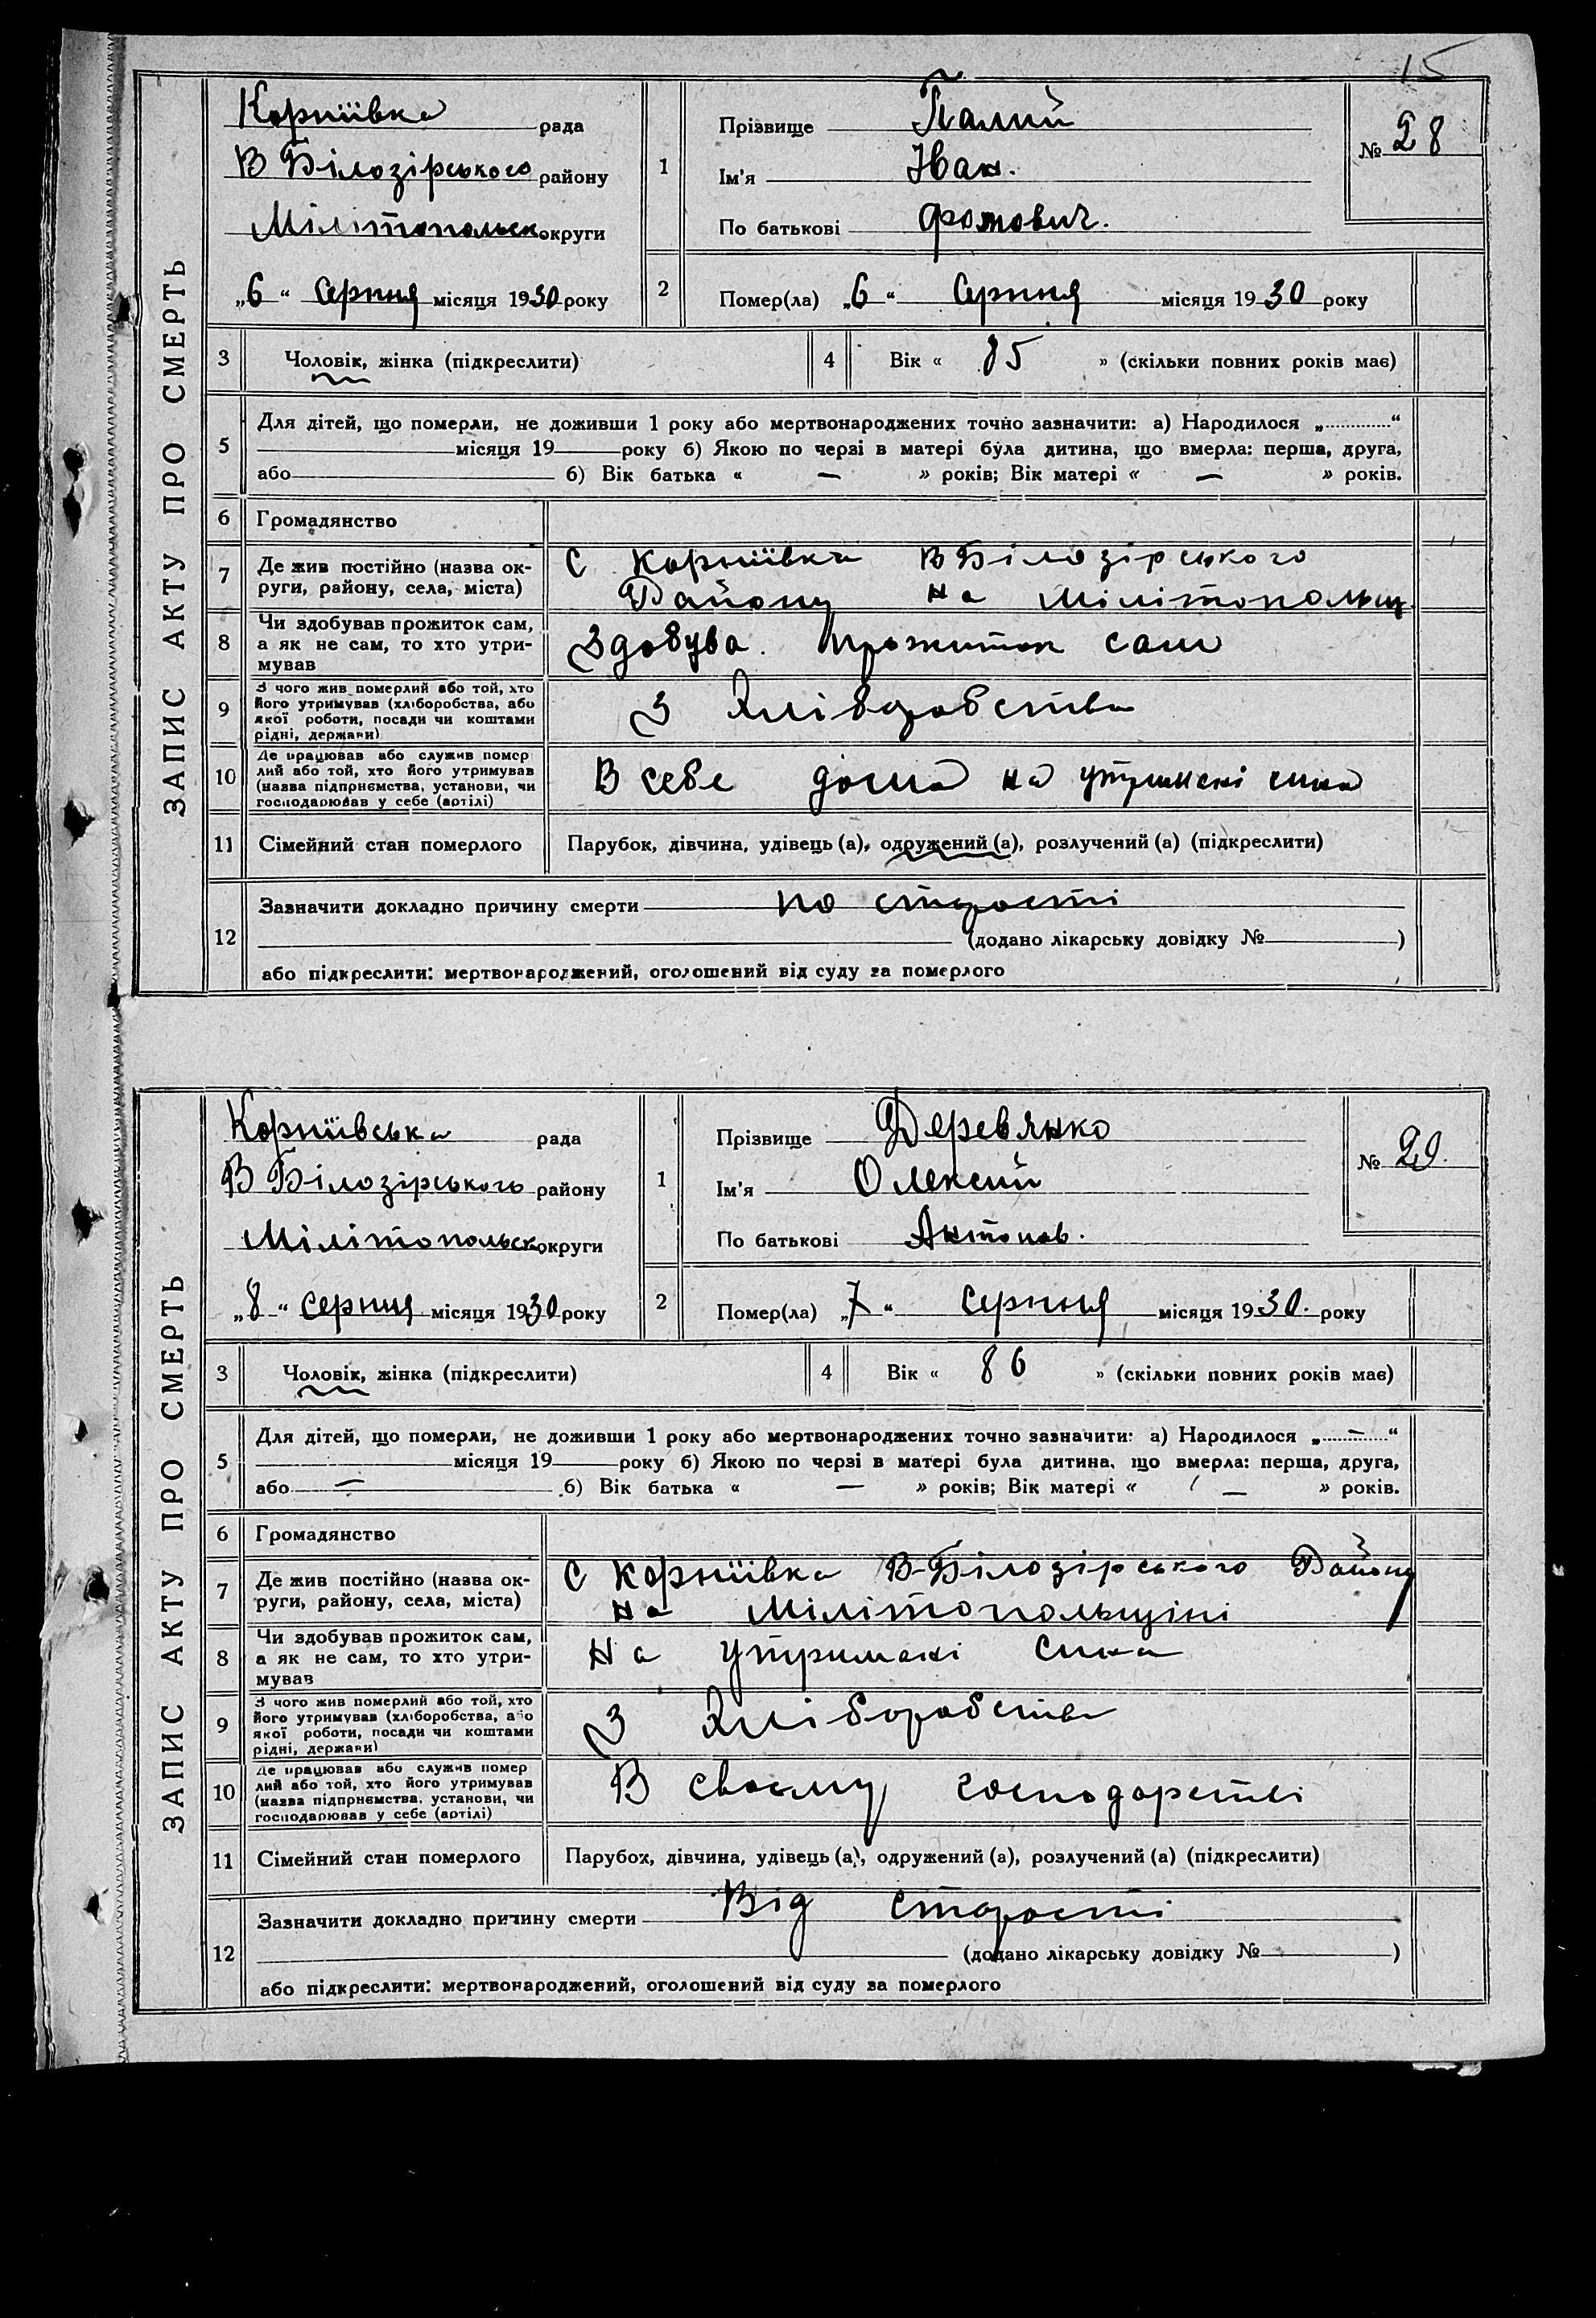 15
ЗАПИС АКТУ ПРО СМЕРТЬ
Корніївка рада
В Білозірського району
Мілітопольск округи
„6“ Серпня місяця 1930 року
1
Прізвище Палий
Ім'я Іван.
По батькові Фомович.
№ 28
2
Помер(ла) „6“ Серпня місяця 1930 року
3 Чоловік, жінка (підкреслити)
4 Вік « 85 » (скільки повних років має)
5
Для дітей, що померли, не доживши 1 року або мертвонароджених точно зазначити: а) Народилося „.............“
місяця 19 року б) Якою по черзі в матері була дитина, що вмерла: перша, друга,
або б) Вік батька « — » років; Вік матері « — » років.
6 Громадянство
7 Де жив постійно (назва ок-
руги, району, села, міста)
С Корніївка В Білозірського
Району на Мілітопольщ.
8 Чи здобував прожиток сам,
а як не сам, то хто утри-
мував
Здобува. прожиток сам
9 З чого жив померлий або той, хто
його утримував (хліборобства, або
якої роботи, посади чи коштами
рідні, держави)
З Хліборобства
10 Де працював або служив помер
лий або той, хто його утримував
(назва підприємства, установи, чи
господарював у себе (артілі)
В себе дома на утримані сина
11 Сімейний стан померлого
Парубок, дівчина, удівець (а), одружений (а), розлучений (а) (підкреслити)
12
Зазначити докладно причину смерти по старості
(додано лікарську довідку № )
або підкреслити: мертвонароджений, оголошений від суду за померлого
ЗАПИС АКТУ ПРО СМЕРТЬ
Корніївська рада
В Білозірського району
Мілітопольск округи
„8“ серпня місяця 1930 року
1
Прізвище Деревянко
Ім'я Олексій
По батькові Антонов.
№ 29.
2
Помер(ла) „7“ серпня місяця 1930. року
3 Чоловік, жінка (підкреслити)
4 Вік « 86 » (скільки повних років має)
5
Для дітей, що померли, не доживши 1 року або мертвонароджених точно зазначити: а) Народилося „....—....“
місяця 19 року б) Якою по черзі в матері була дитина, що вмерла: перша, друга,
або — б) Вік батька « — » років; Вік матері « — » років.
6 Громадянство
7 Де жив постійно (назва ок-
руги, району, села, міста)
С Корніївка В-Білозірського Району
на Мілітопольщіні
8 Чи здобував прожиток сам,
а як не сам, то хто утри-
мував
На утримані сина
9 З чого жив померлий або той, хто
його утримував (хліборобства, або
якої роботи, посади чи коштами
рідні, держави)
З Хліборобства
10 Де працював або служив помер
лий або той, хто його утримував
(назва підприємства, установи, чи
господарював у себе (артілі)
В своєму господарстві
11 Сімейний стан померлого
Парубок, дівчина, удівець (а), одружений (а), розлучений (а) (підкреслити)
12
Зазначити докладно причину смерти Від старості
(додано лікарську довідку № )
або підкреслити: мертвонароджений, оголошений від суду за померлого